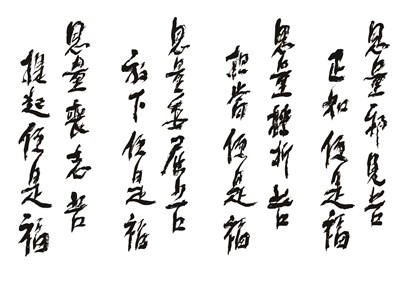 思量邪見苦
正知便是福
思量轉折苦
便是福
思量委屈苦
放下便是福
思量喪志苦
提起便是福